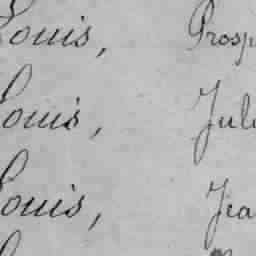 Louis, Prosp
Louis, Jul
Louis, Jea